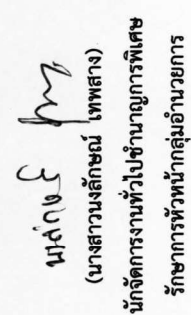 (นางสาวนงลักษณ์ เทพสาง)
นักจัดการงานทั่วไปชำนาญการพิเศษ
รักษาการหัวหน้ากลุ่มอำนวยการ